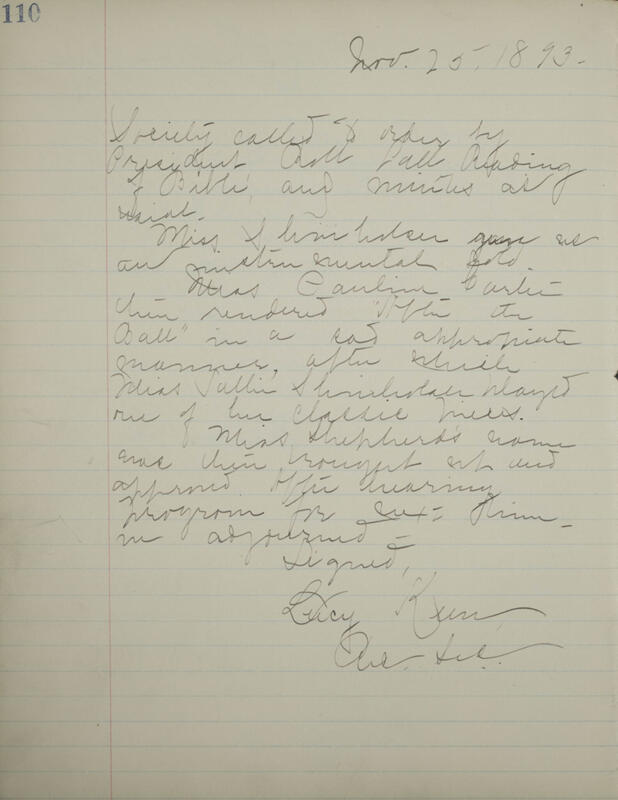 110
Nov. 25, 1893.
Society called to order by
President Roll Call Reading
of Bible, and minutes as
usual.
Miss Shinholser gave us
an instrumental solo.
Miss Pauline
then rendered "After the
Ball" in a sad appropriate
manner, after which
Miss Sallie Shinholser played
one of her classic pieces.
Miss Shepherd's name
was then brought up and
approved. After hearing
program for next time
we adjourned -
Signed,
Lucy
Rec. Sec.